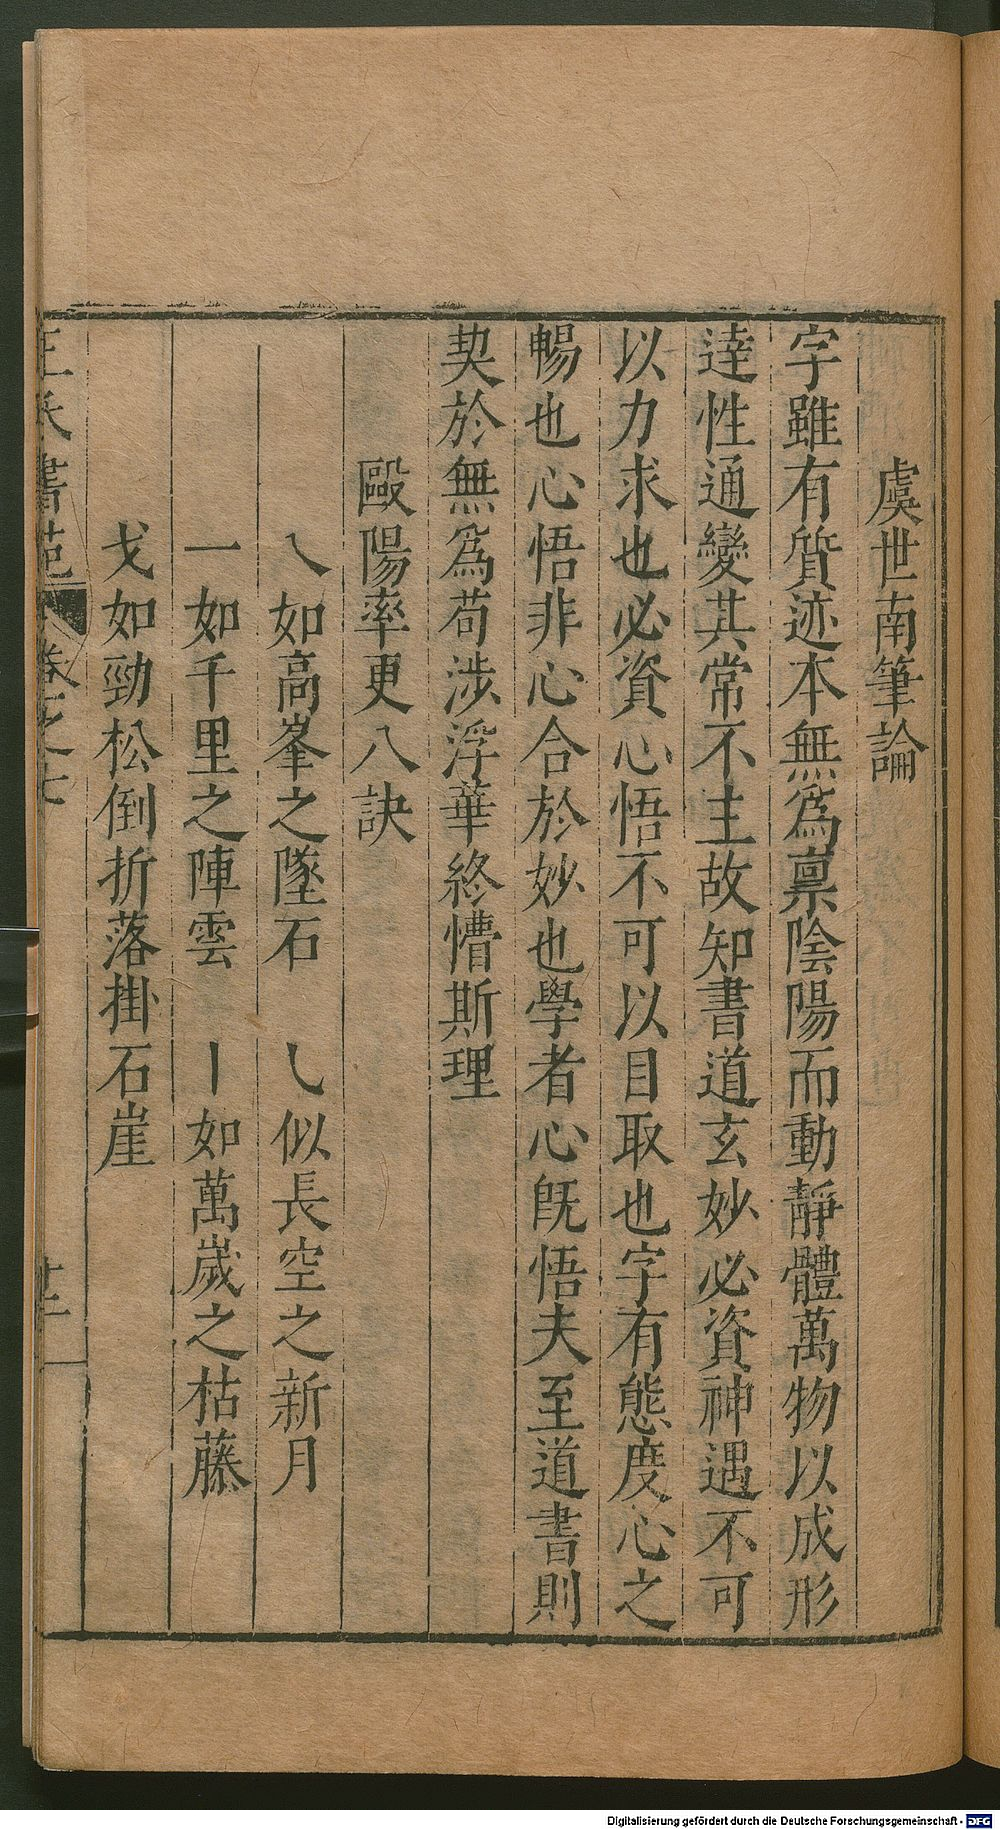 虞世南筆論
字雖有質迹本無爲禀陰陽而動靜體萬物以成形
達性通變其常不主故知書道玄妙必資神遇不可
以力求也必資心悟不可以目取也字有態度心之
暢也心悟非心合於妙也學者心旣悟夫至道書則
契於無爲苟涉浮華終懵斯理
歐陽率更八訣
㇏如高峯之墜石　㇃似長空之新月
一如千里之陣雲　丨如萬歲之枯藤
戈如勁松倒折落掛石崖
王氏書苑　卷之七　十二
Digitalisierung gefördert durch die Deutsche Forschungsgemeinschaft - DFG